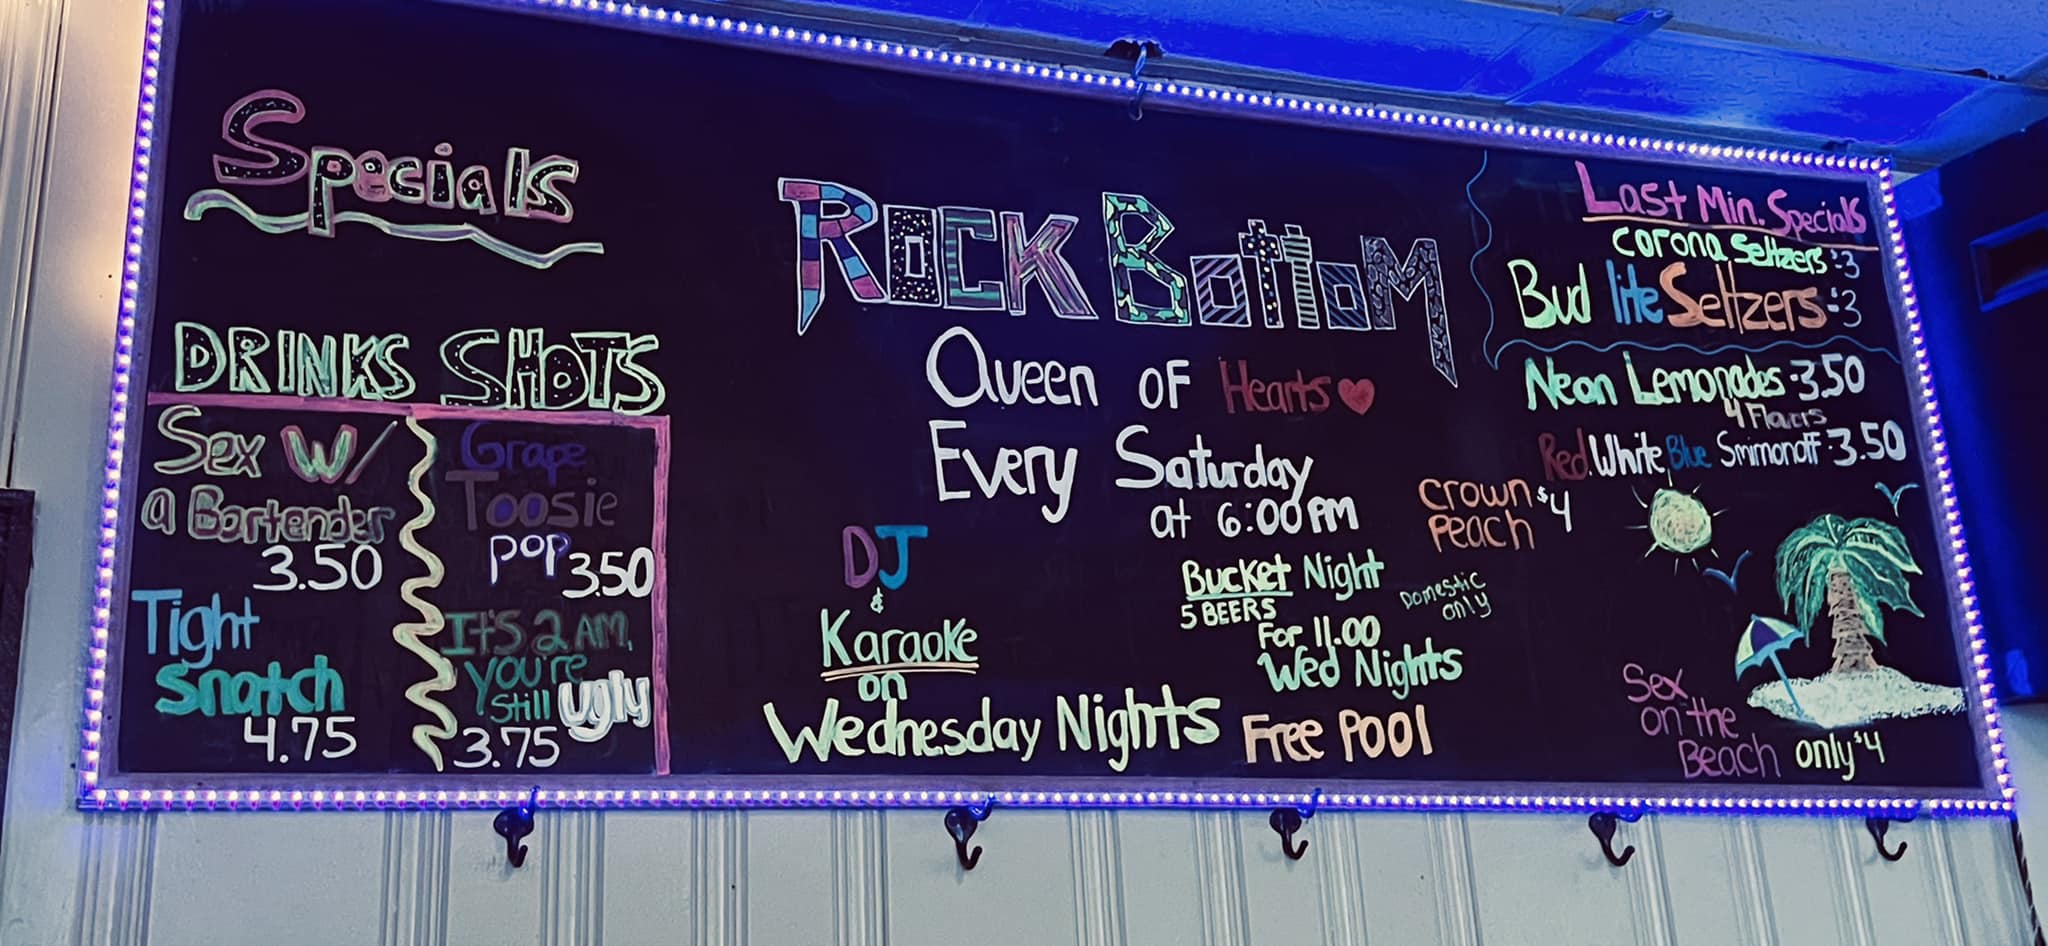 Specials
DRINKS SHOTS
Sex W/
a Bartender
3.50
Tight
Snatch
4.75
Grape
Toosie
pop 3.50
It's 2 AM,
you're
still ugly
3.75
ROCK BOTTOM
Queen of Hearts
Every Saturday
at 6:00 PM
DJ
&
Karaoke
on
Wednesday Nights
Bucket Night
5 BEERS
Domestic
only
For 11.00
Wed Nights
Free POOl
Last Min. Specials
Corona Seltzers $3
Bud lite Seltzers $3
Neon Lemonades 3.50
4 Flavors
Red White Blue Smimonoff 3.50
Crown $4
Peach
Sex
on the
Beach only $4